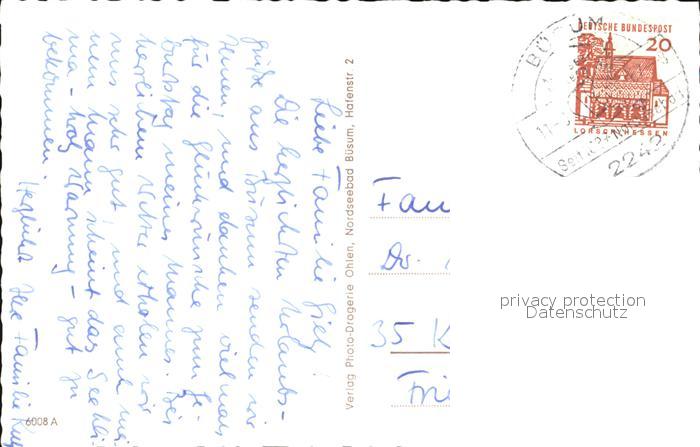 Liebe Familie
Die herzlichsten Urlaubs-
grüße aus Büsum senden wir
Ihnen, und danken vielmals
für die Glückwünsche zum Ge-
burtstag meines Mannes. Bei
herrlichem Wetter erholen wir
uns sehr gut und auch mei-
nem Mann scheint das Seekli-
ma - trotz Warnung - gut zu
bekommen.
Herzlichst Ihre Familie
Verlag Photo-Drogerie Ohlen, Nordseebad Büsum, Hafenstr 2
6008 A
DEUTSCHE BUNDESPOST
20
LORSCH/HESSEN
BÜSUM
2242
Fam
Dr.
35 K
Fri
privacy protection
Datenschutz